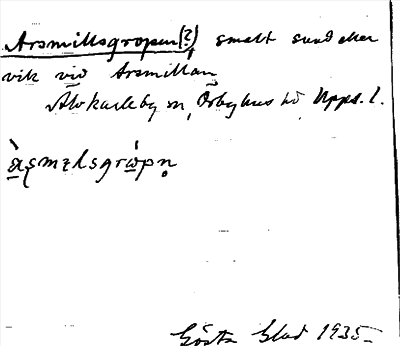 Arsmillsgropen(?), smalt sund eller
vik vid Arsmillan,
Älvkarleby sn, Örbyhus hd Upps. l.
Gösta Blad 1935